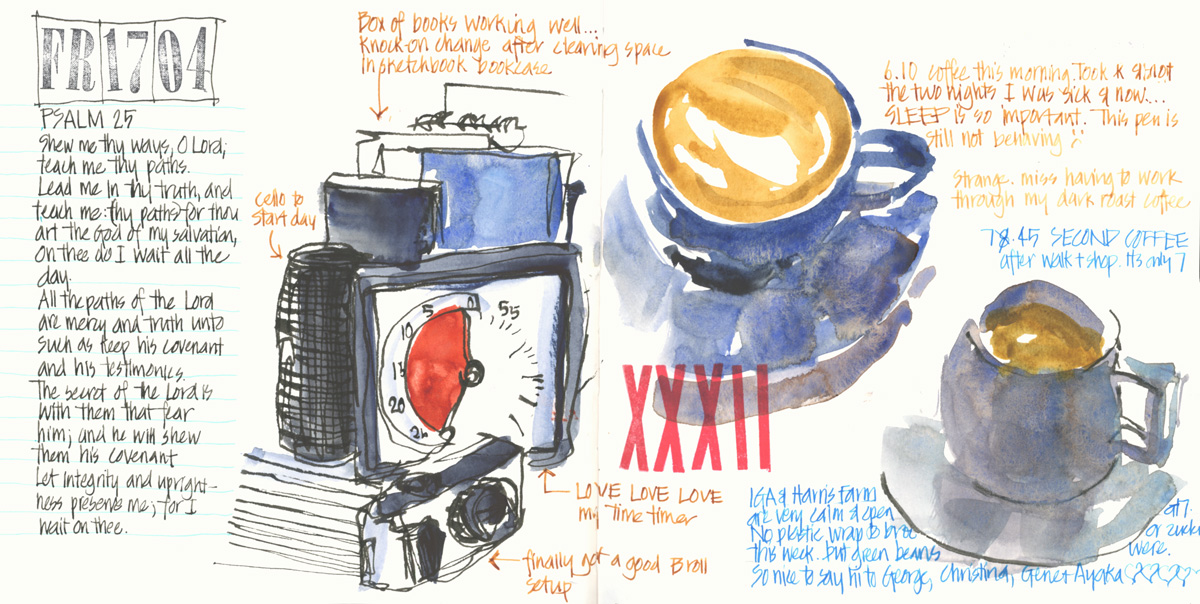 FR 17 04
PSALM 25
Shew me thy ways, O Lord;
teach me thy paths.
Lead me in thy truth, and
teach me: thy paths for thou
art the God of my salvation,
on thee do I wait all the
day.
All the paths of the Lord
are mercy and truth unto
such as keep his covenant
and his testimonies.
The secret of the Lord is
with them that fear
him; and he will shew
them his covenant
Let integrity and upright-
ness preserve me; for I
wait on thee.
Box of books working well...
knock-on change after clearing space
in sketchbook bookcase
cello to
start day
5 55
10
15
20
LOVE LOVE LOVE
my Time timer
finally got a good B roll
setup
XXXII
6.10 coffee this morning. Took
the two nights I was sick & now...
SLEEP is so important. This pen is
still not behaving
Strange. miss having to work
through my dark roast coffee
8.45 SECOND COFFEE
after walk + shop. Its only 7
IGA & Harris Farm
are very calm & open
No plastic wrap to
this week. But green beans
or
were.
So nice to say hi to George, Christina, Genet Ayaka